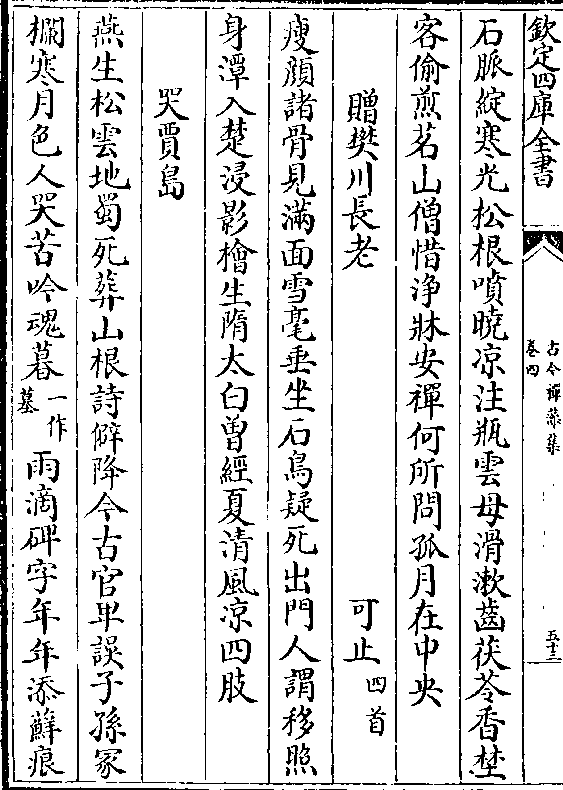 欽定四庫全書
古今禪藻集
卷四
五十三
石脈綻寒光松根噴曉凉注瓶雲母滑漱齒茯苓香埜
客偷煎茗山僧惜浄牀安禪何所問孤月在中央
贈樊川長老 可止 四首
瘦顔諸骨見滿面雪毫垂坐石鳥疑死出門人謂移照
身潭入楚浸影檜生隋太白曾經夏清風凉四肢
哭賈島
燕生松雲地蜀死葬山根詩僻降今古官卑誤子孫冢
欄寒月色人哭苦吟魂暮一作墓雨滴碑字年年添蘚痕